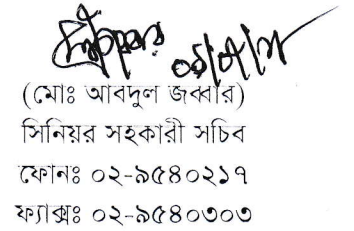 (মোঃ আবদুল জব্বার)
সিনিয়র সহকারী সচিব
ফোনঃ ০২-৯৫৪০২১৭
ফ্যাক্সঃ ০২-৯৫৪০৩০৩